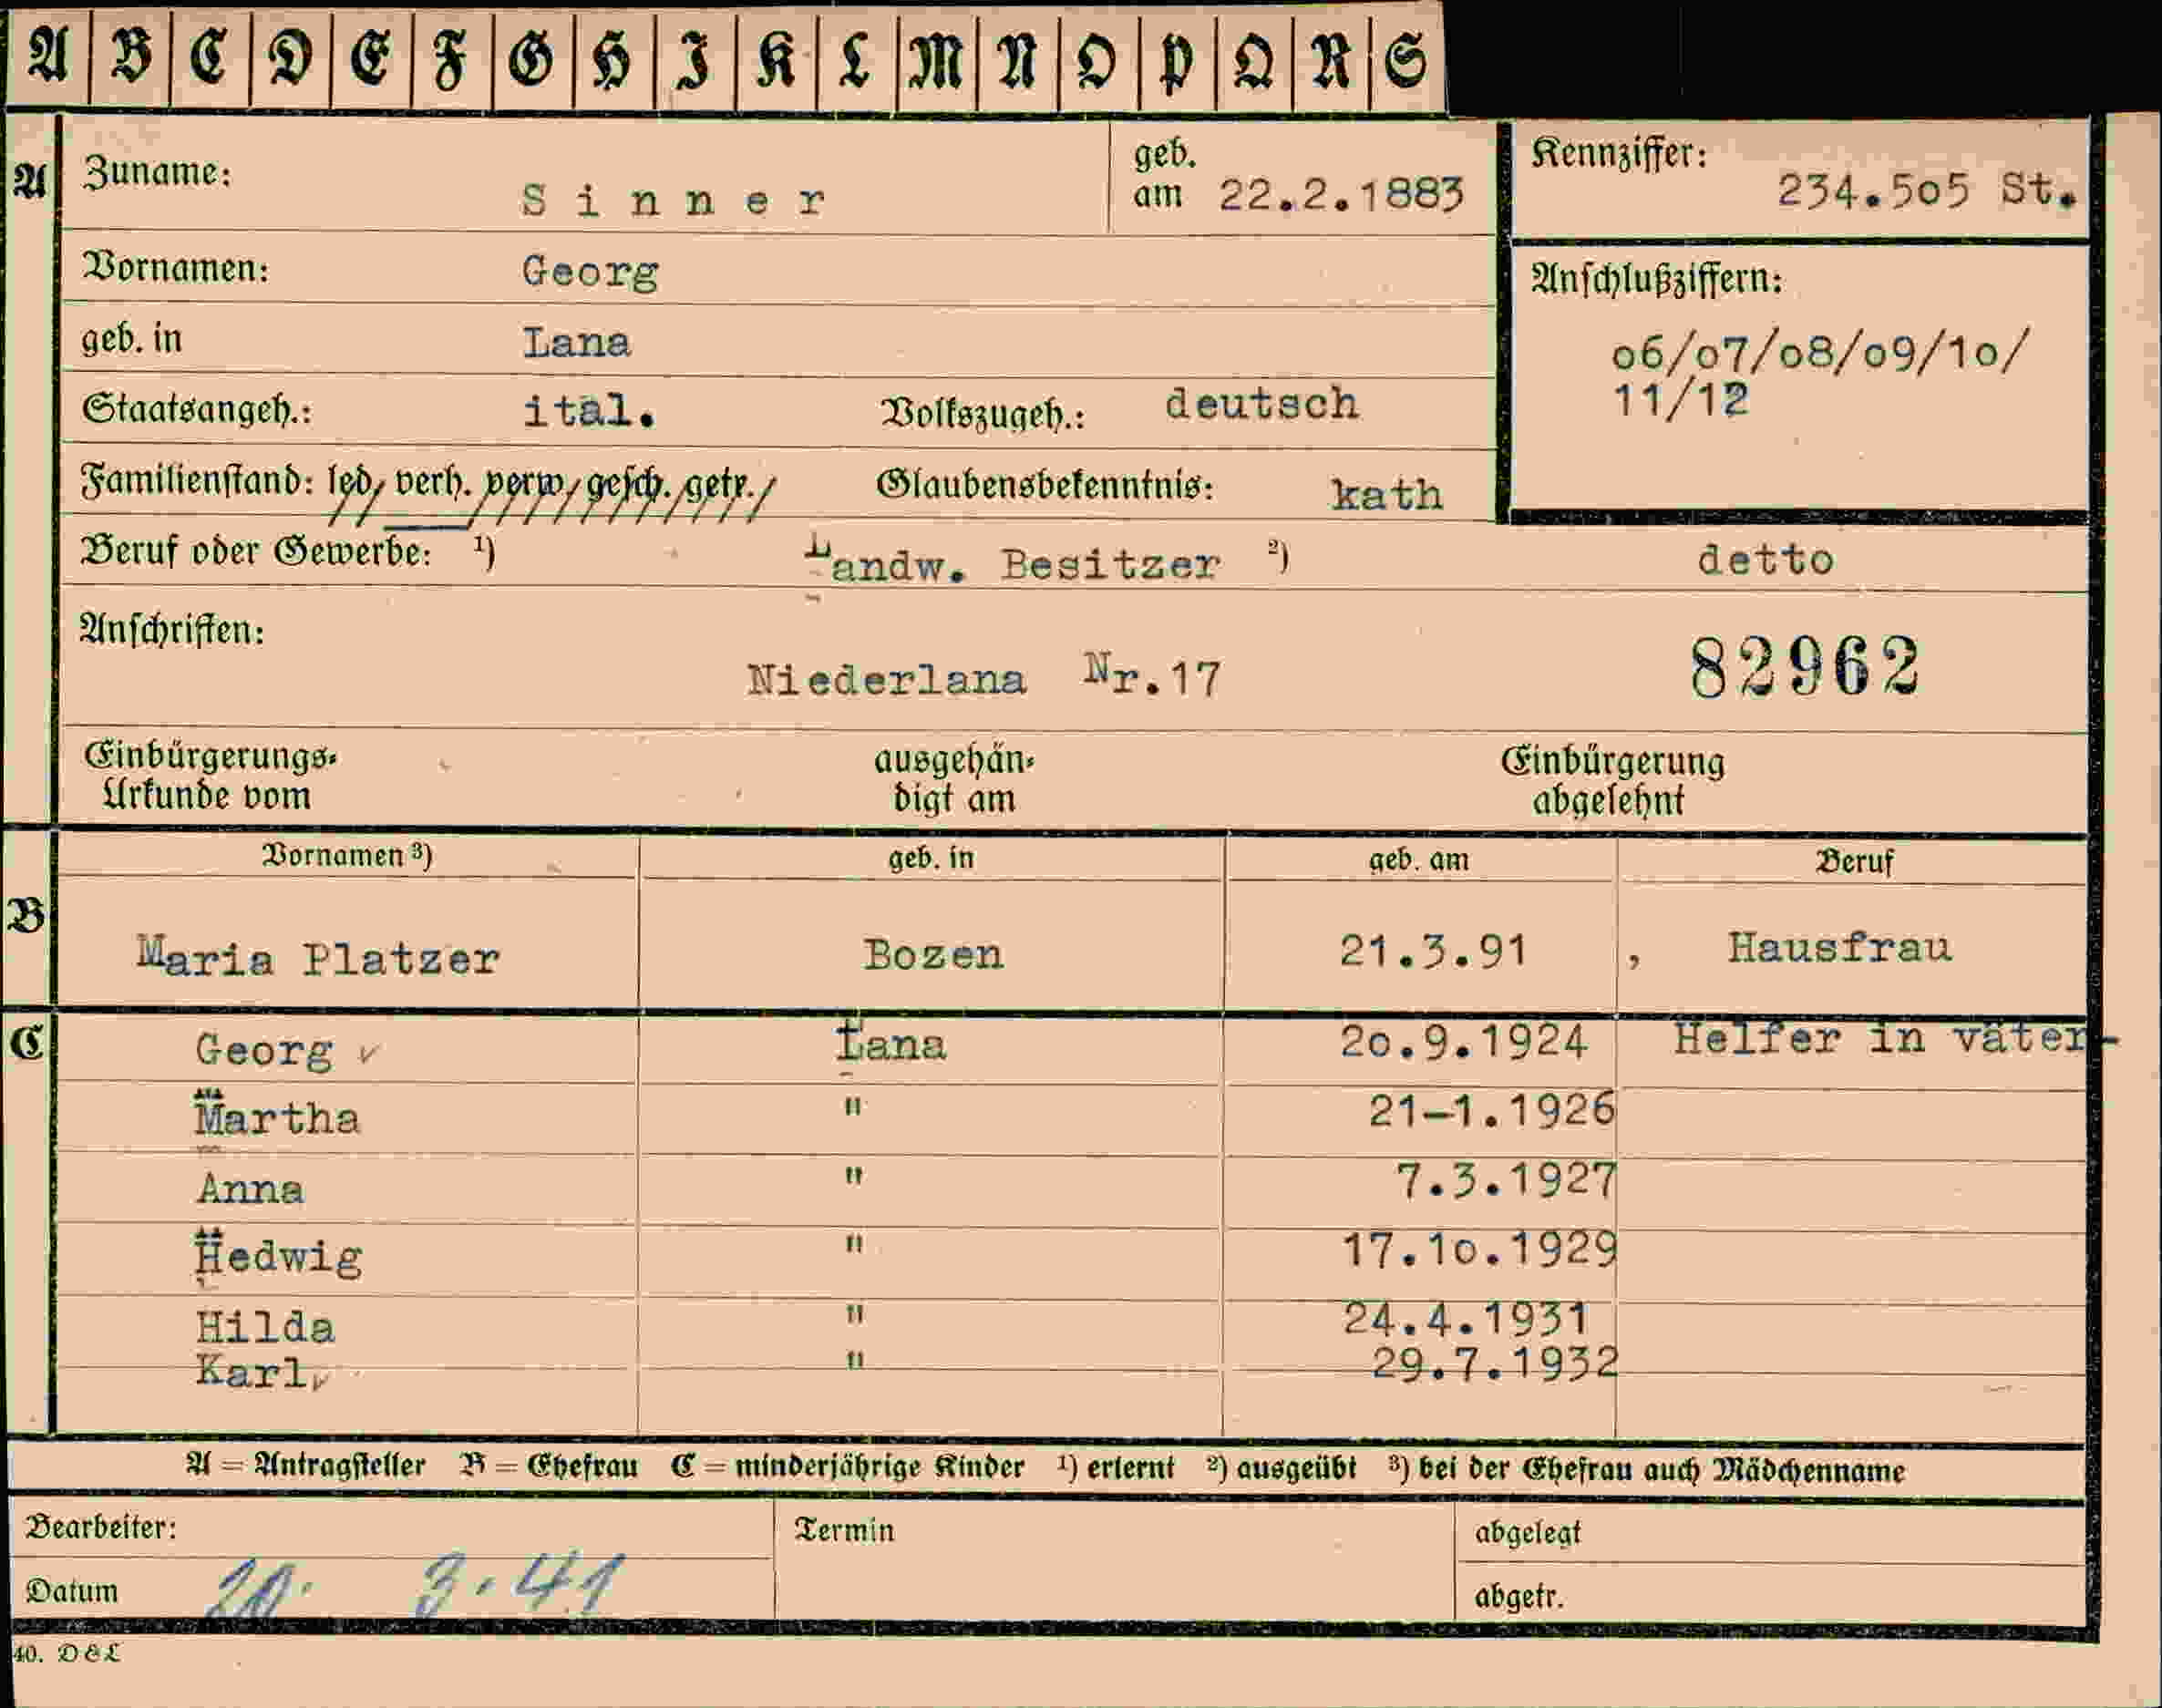 A B C D E F G H I K L M N O P Q R S
A Zuname: Sinner geb. am 22.2.1883 Kennziffer: 234.505 St.
Vornamen: Georg Anschlußziffern:
geb. in Lana o6/o7/o8/o9/1o/
11/12
Staatsangeh.: ital. Volkszugeh.: deutsch
Familienstand: led, verh. verw, gesch. getr. Glaubensbekenntnis: kath
Beruf oder Gewerbe: 1) Landw. Besitzer 2) detto
Anschriften:
Niederlana Nr.17 82962
Einbürgerungs- ausgehän- Einbürgerung
Urkunde vom digt am abgelehnt
Vornamen 3) geb. in geb. am Beruf
B Maria Platzer Bozen 21.3.91 , Hausfrau
C Georg Lana 2o.9.1924 Helfer in väter-
Martha " 21-1.1926
Anna " 7.3.1927
Hedwig " 17.1o.1929
Hilda " 24.4.1931
Karl " 29.7.1932
A = Antragsteller B = Ehefrau C = minderjährige Kinder 1) erlernt 2) ausgeübt 3) bei der Ehefrau auch Mädchenname
Bearbeiter: Termin abgelegt
Datum 20. 3.41 abgetr.
40. D&L